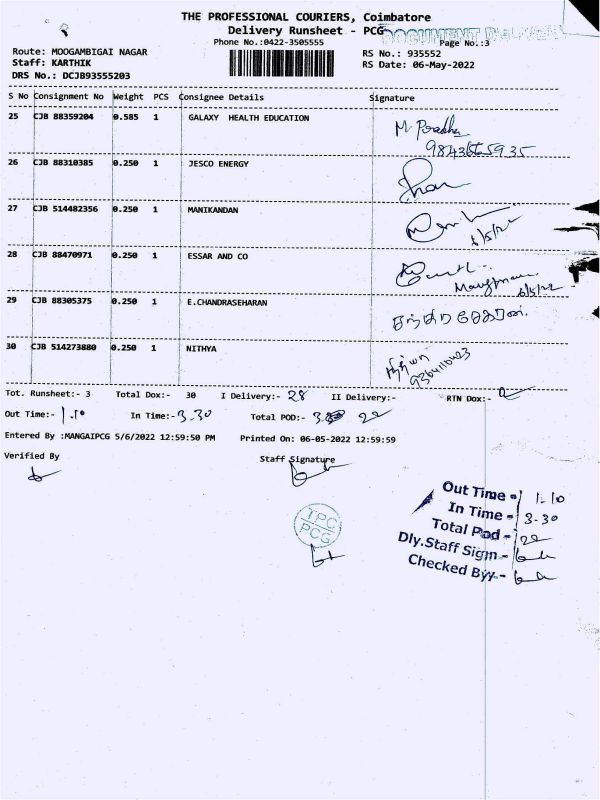 THE PROFESSIONAL COURIERS, Coimbatore
Delivery Runsheet - PCG
DOCUMENT DELIVERY
Phone No.:0422-3505555
Page No.:3
Route: MOOGAMBIGAI NAGAR
RS No.: 935552
Staff: KARTHIK
RS Date: 06-May-2022
DRS No.: DCJB93555203
S No Consignment No Weight PCS Consignee Details Signature
25 CJB 88359204 0.585 1 GALAXY HEALTH EDUCATION
M. Prabhu
26 CJB 88310385 0.250 1 JESCO ENERGY
27 CJB 514482356 0.250 1 MANIKANDAN
6/5/22
28 CJB 88470971 0.250 1 ESSAR AND CO
6/5/22
29 CJB 88305375 0.250 1 E.CHANDRASEHARAN
சந்திரசேகரன்.
30 CJB 514273880 0.250 1 NITHYA
நித்யா
Tot. Runsheet:- 3 Total Dox:- 30 I Delivery:- 28 II Delivery:- RTN Dox:- 2
Out Time:- 1.10 In Time:- 3.30 Total POD:- 22
Entered By :MANGAIPCG 5/6/2022 12:59:50 PM Printed On: 06-05-2022 12:59:59
Verified By
Staff Signature
TPC
PCG
Out Time - 1.10
In Time - 3-30
Total Pod - 22
Dly.Staff Sign -
Checked By -